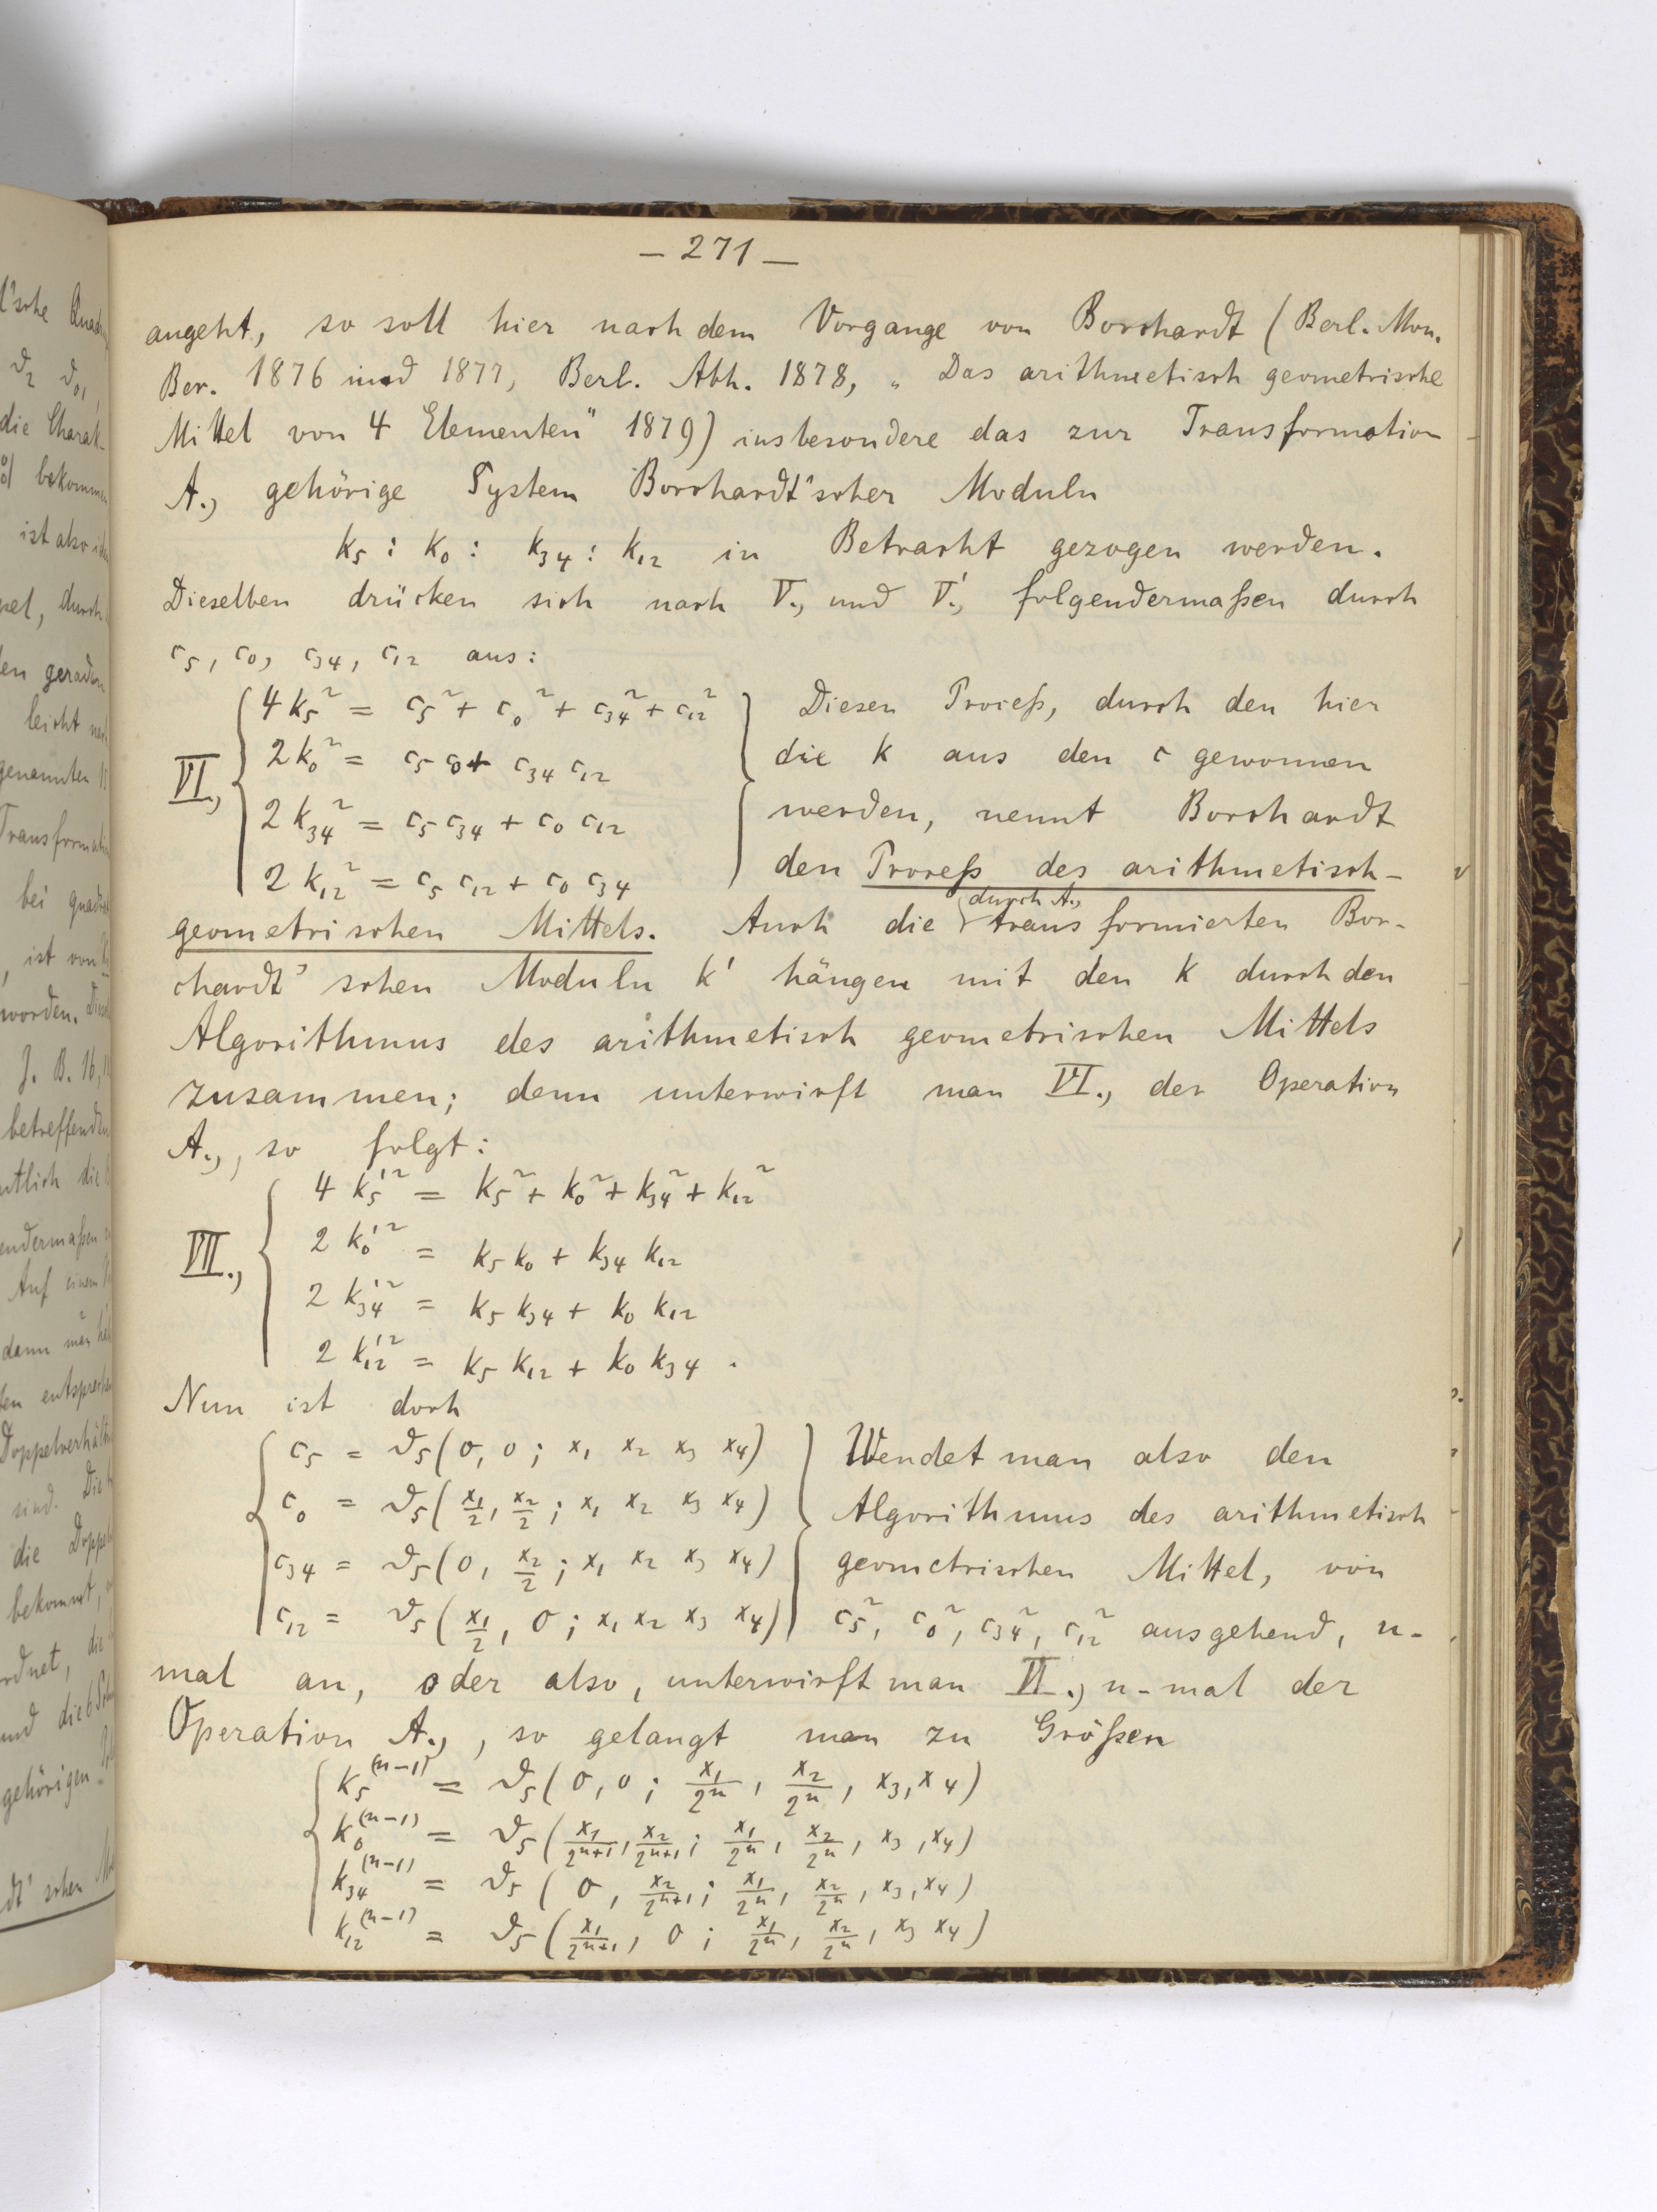 — 271 —
angeht, so soll hier nach dem Vorgange von Borchardt (Berl. Mon.
Ber. 1876 und 1877, Berl. Abh. 1878, „Das arithmetisch geometrische
Mittel von 4 Elementen" 1879) insbesondere das zur Transformation
A., gehörige System Borchardt'scher Moduln
k₅ : k₀ : k₃₄ : k₁₂ in Betracht gezogen werden.
Dieselben drücken sich nach V., und V'., folgendermaßen durch
c₅, c₀, c₃₄, c₁₂ aus:
VI., { 4k₅² = c₅² + c₀² + c₃₄² + c₁₂² } Diesen Proceß, durch den hier
2k₀² = c₅ c₀ + c₃₄ c₁₂ die k aus den c gewonnen
2k₃₄² = c₅ c₃₄ + c₀ c₁₂ werden, nennt Borchardt
2k₁₂² = c₅ c₁₂ + c₀ c₃₄ den Proceß des arithmetisch-
geometrischen Mittels. Auch die {durch A., transformierten Bor-
chardt'schen Moduln k' hängen mit den k durch den
Algorithmus des arithmetisch geometrischen Mittels
zusammen; denn unterwirft man VI., der Operation
A., , so folgt:
VII., { 4k₅'² = k₅² + k₀² + k₃₄² + k₁₂²
2k₀'² = k₅ k₀ + k₃₄ k₁₂
2k₃₄'² = k₅ k₃₄ + k₀ k₁₂
2k₁₂'² = k₅ k₁₂ + k₀ k₃₄ .
Nun ist doch
{ c₅ = ϑ₅(0, 0; x₁ x₂ x₃ x₄) } Wendet man also den
c₀ = ϑ₅(x₁/2, x₂/2; x₁ x₂ x₃ x₄) Algorithmus des arithmetisch
c₃₄ = ϑ₅(0, x₂/2; x₁ x₂ x₃ x₄) geometrischen Mittel, von
c₁₂ = ϑ₅(x₁/2, 0; x₁ x₂ x₃ x₄) c₅², c₀², c₃₄², c₁₂² ausgehend, n-
mal an, oder also, unterwirft man VI., n-mal der
Operation A., , so gelangt man zu Größen
{ k₅⁽ⁿ⁻¹⁾ = ϑ₅(0, 0; x₁/2ⁿ, x₂/2ⁿ, x₃, x₄)
k₀⁽ⁿ⁻¹⁾ = ϑ₅(x₁/2ⁿ⁺¹, x₂/2ⁿ⁺¹; x₁/2ⁿ, x₂/2ⁿ, x₃, x₄)
k₃₄⁽ⁿ⁻¹⁾ = ϑ₅(0, x₂/2ⁿ⁺¹; x₁/2ⁿ, x₂/2ⁿ, x₃, x₄)
k₁₂⁽ⁿ⁻¹⁾ = ϑ₅(x₁/2ⁿ⁺¹, 0; x₁/2ⁿ, x₂/2ⁿ, x₃ x₄)